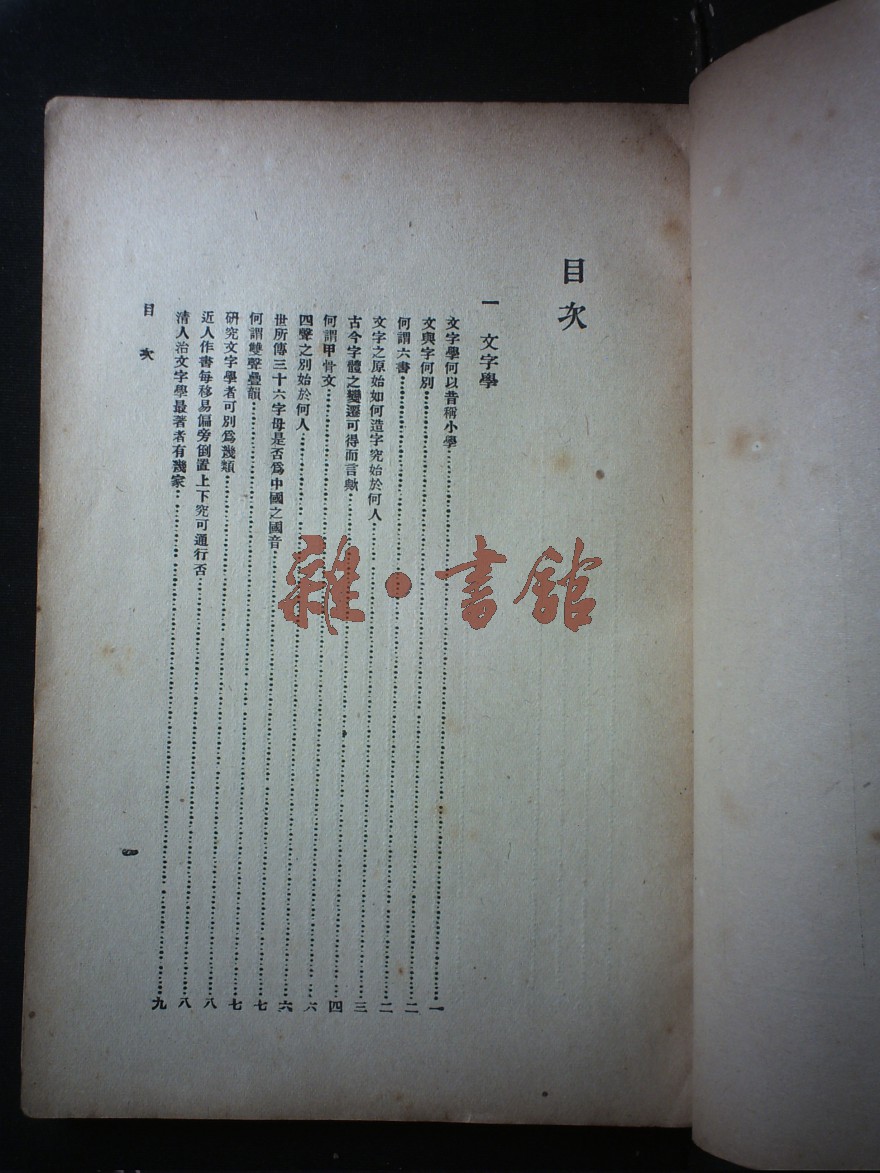 目次
一 文字學
文字學何以昔稱小學……一
文與字何別……二
何謂六書……二
文字之原始如何造字究始於何人……三
古今字體之變遷可得而言歟……四
何謂甲骨文……六
四聲之別始於何人……六
世所傳三十六字母是否爲中國之國音……七
何謂雙聲疊韻……七
研究文字學者可別爲幾類……八
近人作書每移易偏旁倒置上下究可通行否……八
清人治文字學最著者有幾家……九
目 次
雜·書館